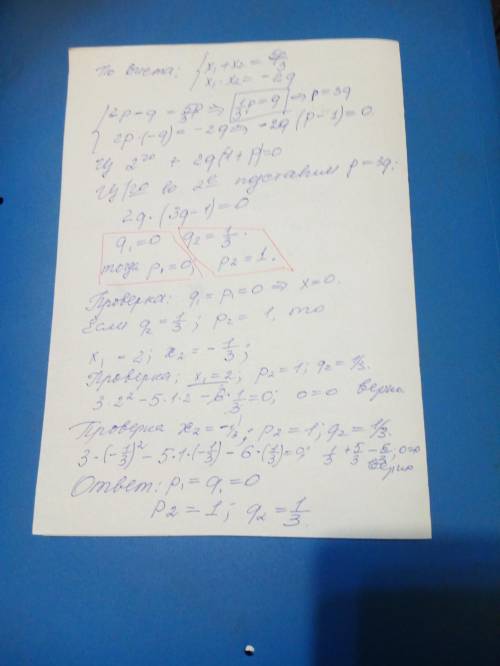 По Виета: { x₁ + x₂ = 5p/3
x₁ · x₂ = -2q
{ 2p - q = 5p/3 ⇒ 1/3 p = q ⇒ p = 3q
2p · (-q) = -2q ⇒ -2q (p - 1) = 0
Из 2го + 2q( 1 + p)=0
Из во 2е подставим p = 3q:
2q · (3q - 1) = 0
q₁ = 0 q₂ = 1/3.
тогда p₁ = 0; p₂ = 1.
Проверка: q₁ = p₁ = 0 ⇒ x = 0.
Если q₂ = 1/3; p₂ = 1, то
x₁ = 2; x₂ = - 1/3;
Проверка; x₁ = 2; p₂ = 1; q₂ = 1/3.
3 · 2² - 5 · 1 · 2 - 6 · 1/3 = 0; 0 = 0 верно
Проверка x₂ = -1/3; p₂ = 1; q₂ = 1/3.
3 · (-1/3)² - 5 · 1 · (-1/3) - 6 · (1/3) = 0; 1/3 + 5/3 - 6/3; 0=0
верно
Ответ: p₁ = q₁ = 0
p₂ = 1; q₂ = 1/3.